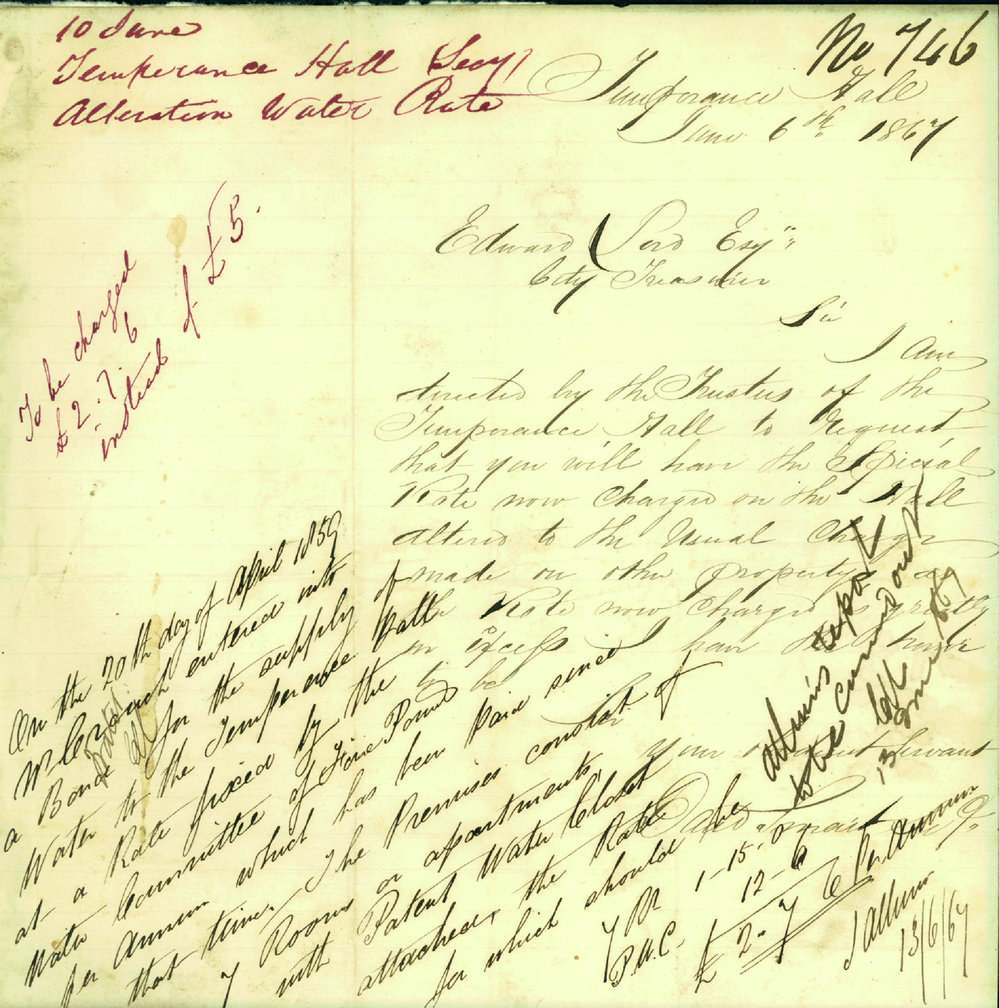 10 June
Temperance Hall Secy
Alteration Water Rate
No 746
Temperance Hall
June 6th 1867
Edward Esqr
City Treasurer
Sir
I am
directed by the Trustees of the
Temperance Hall to Request
that you will have the Special
Rate now Charged on the Hall
altered to the Usual Charge
made on other property as
the Rate now Charged is greatly
in Excess I have the honor
to be
Sir
Your obedient Servant
To be charged
£2.7.6
instead of £5.
On the 20th day of April 1859
Mr entered into
a Bond dated for the supply of
Water to the Temperance Hall
at a Rate fixed by the
Water Committee of Five Pound
per Annum which has been paid since
that time. The Premises consist of
7 Rooms or apartments
with Patent Water Closet
attached, the Rate
for which should be
7 R 1-15-0
P.W.C. 12-6
£2-7-6 Per Annum
13/6/67
report
to be carried out
13 June 1867